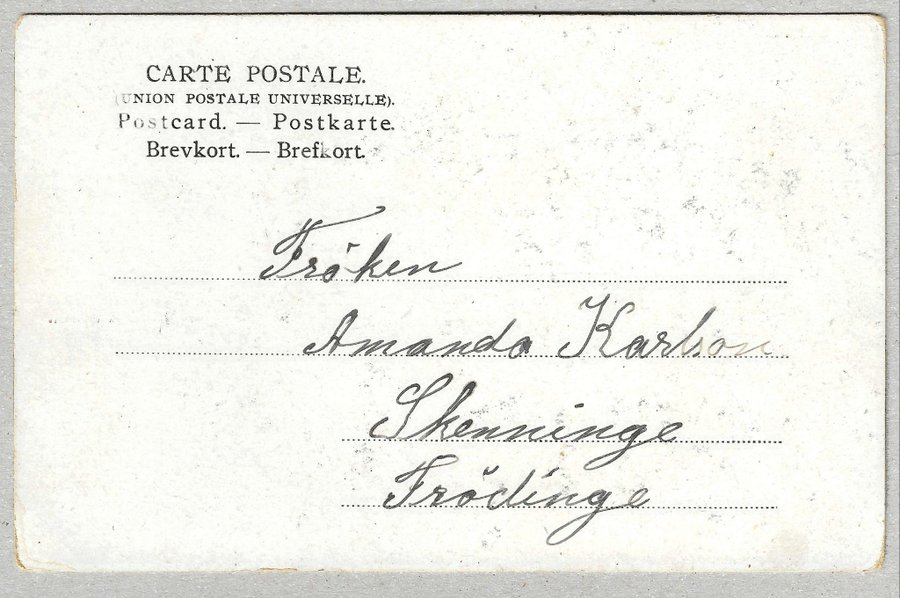 CARTE POSTALE.
(UNION POSTALE UNIVERSELLE).
Postcard. — Postkarte.
Brevkort. — Brefkort.
Fröken
Amanda Karlson
Skenninge
Frödinge